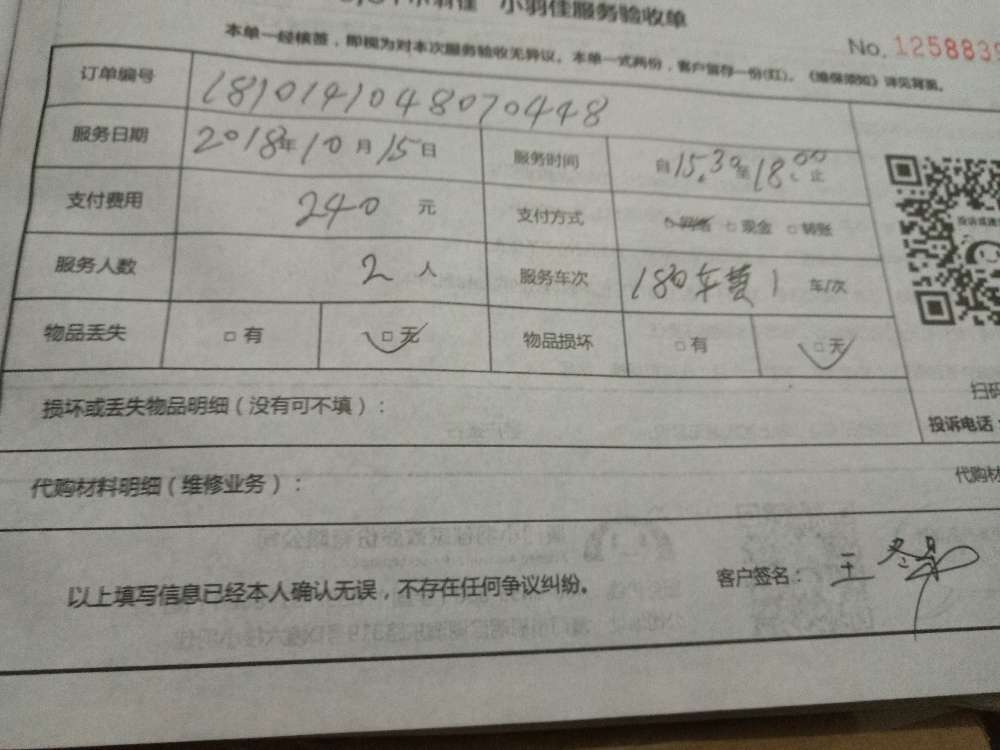 小羽佳服务验收单
本单一经核签，即视为对本次服务验收无异议。本单一式两份，客户留存一份(红)。《维保须知》详见背面。
No. 1258839
订单编号 1810141048070448
服务日期 2018年10月15日 服务时间 自15.30至18.00止
支付费用 240元 支付方式 □网络 □现金 □转账
服务人数 2人 服务车次 180车费1 车/次
物品丢失 □有 □无 物品损坏 □有 □无
扫码
损坏或丢失物品明细（没有可不填）：
投诉电话：
代购材料明细（维修业务）：
代购材
以上填写信息已经本人确认无误，不存在任何争议纠纷。
客户签名：王